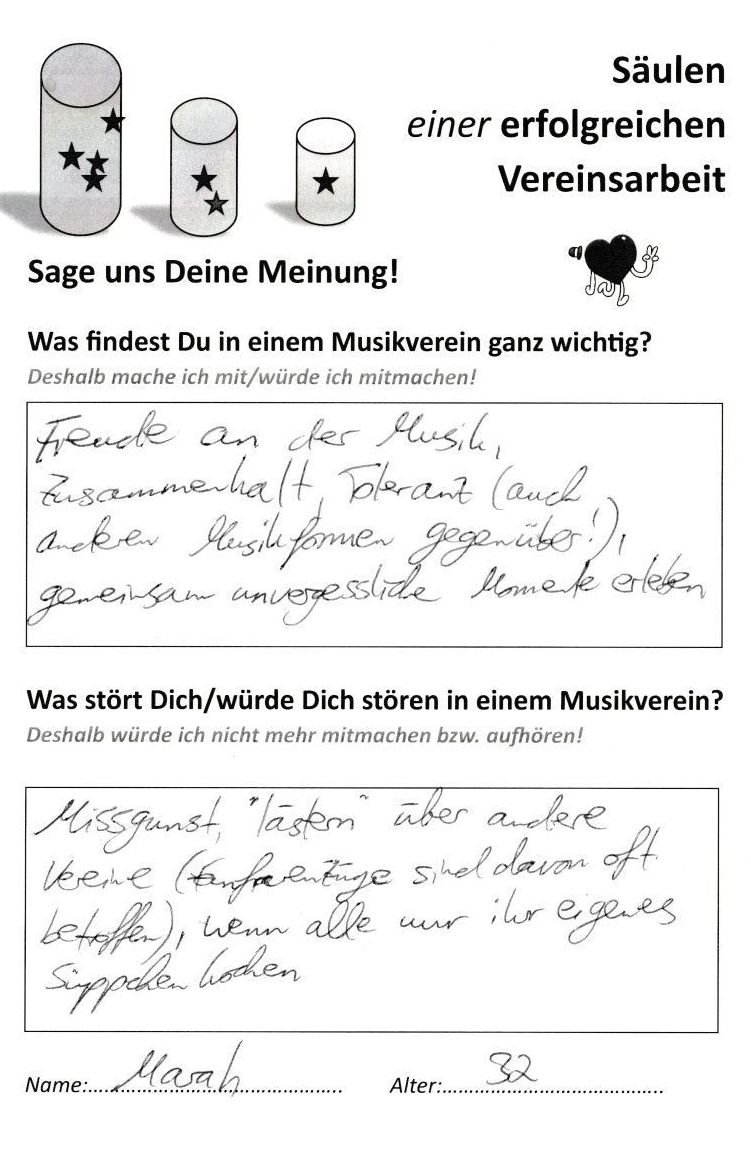 Säulen
einer erfolgreichen
Vereinsarbeit
Sage uns Deine Meinung!
Was findest Du in einem Musikverein ganz wichtig?
Deshalb mache ich mit/würde ich mitmachen!
Freude an der Musik,
Zusammenhalt, Toleranz (auch
anderen Musikformen gegenüber!),
gemeinsam unvergessliche Momente erleben
Was stört Dich/würde Dich stören in einem Musikverein?
Deshalb würde ich nicht mehr mitmachen bzw. aufhören!
Missgunst, "lästern" über andere
Vereine (Fanfarenzüge sind davon oft
betroffen), wenn alle nur ihr eigenes
Süppchen kochen
Name: Marah Alter: 32